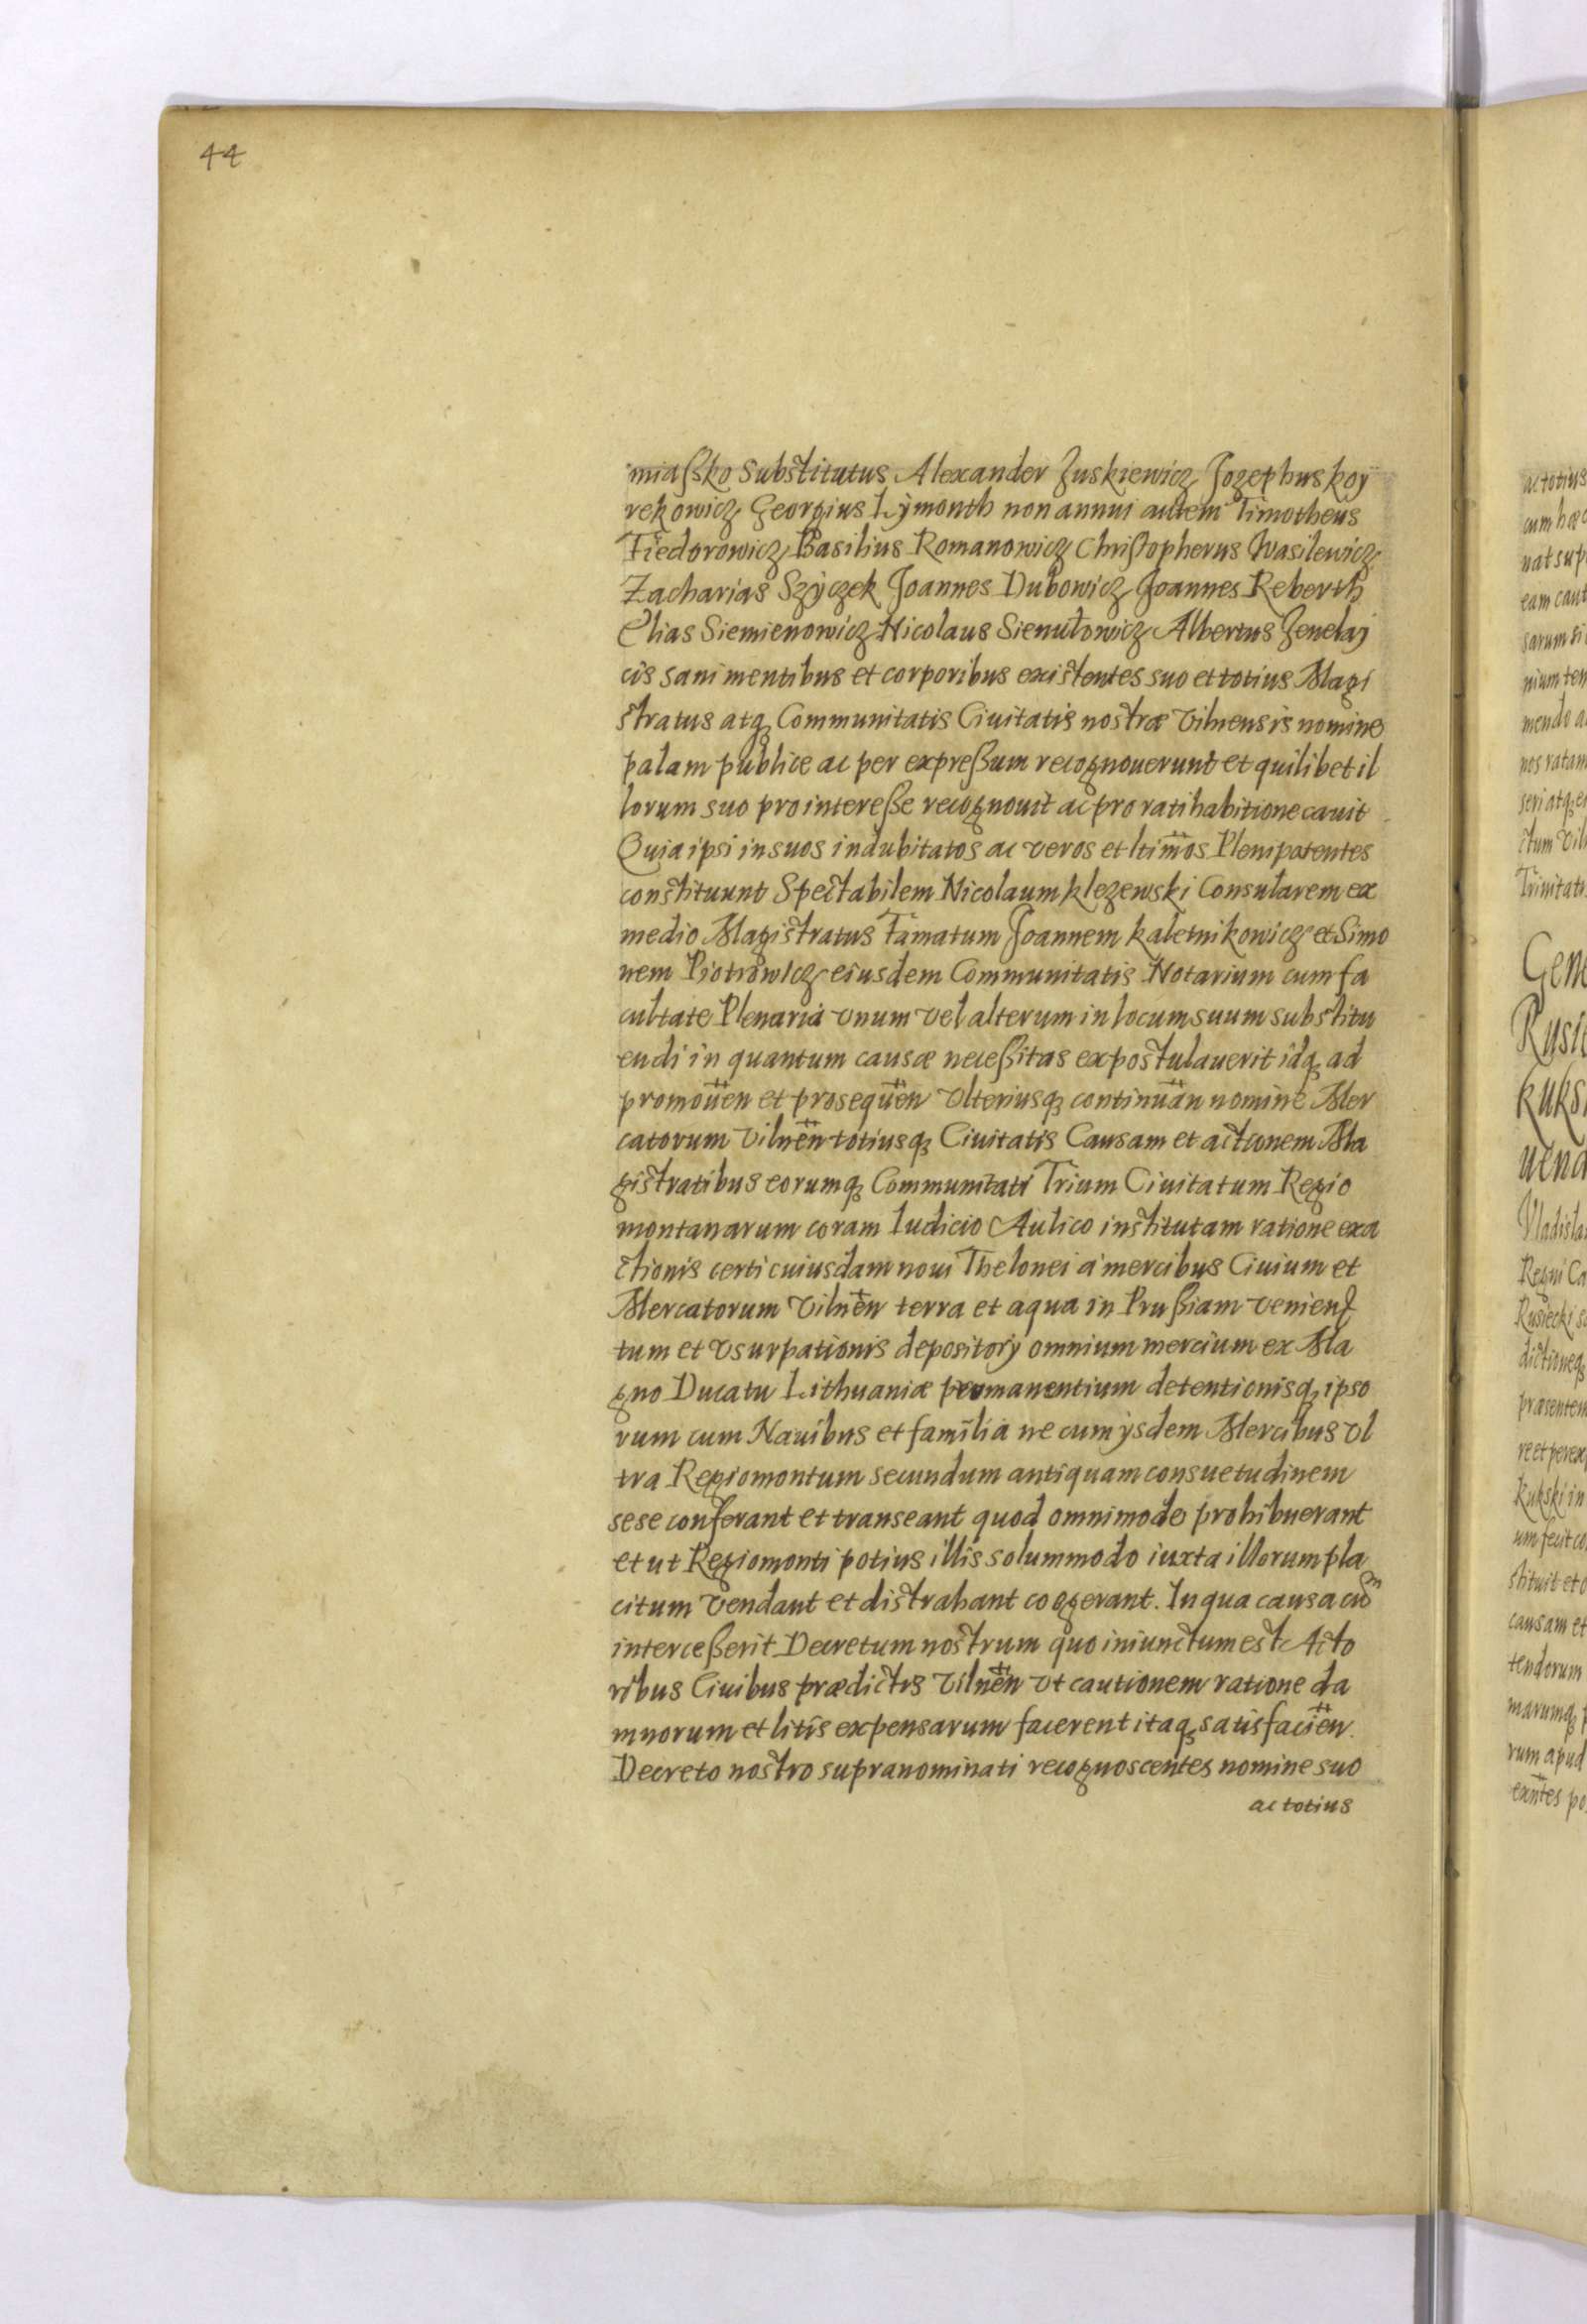 44
miaßko Substitutus Alexander Zuskiewicz Jozephus koÿ
rekowicz Georgius Lÿmonth non annui autem Timotheus
Fiedorowicz Basilius Romanowicz Christopherus Wasilewicz
Zacharias Szÿczek Joannes Dubowicz Joannes Reberth
Elias Siemienowicz Nicolaus Sienułowicz Albertus Zenelaj
cis sani mentibus et corporibus existentes suo et totius Magi
stratus atq Communitatis Ciuitatis nostræ Vilnensis nomine
palam publice ac per expreßum recognouerunt et quilibet il
lorum suo pro intereße recognouit ac pro ratihabitione cauit
Quia ipsi in suos indubitatos ac veros et ltimos Plenipotentes
constituunt Spectabilem Nicolaum klezewski Consularem ex
medio Magistratus Famatum Joannem kaletnikowicz et Simo
nem Piotrowicz eiusdem Communitatis Notarium cum fa
cultate Plenaria vnum vel alterum in locum suum substitu
endi in quantum causæ neceßitas expostulauerit idq ad
promouen et prosequen vlteriusq continuan nomine Mer
catorum Vilnen totiusq Ciuitatis Causam et actionem Ma
gistratibus eorumq Communitati Trium Ciuitatum Regio
montanarum coram Iudicio Aulico institutam ratione exa
ctionis certi cuiusdam noui Thelonei a mercibus Ciuium et
Mercatorum Vilnen terra et aqua in Prußiam venien
tum et vsurpationis depositorÿ omnium mercium ex Ma
gno Ducatu Lithuaniæ promanentium detentionisq ipso
rum cum Nauibus et familia ne cum ÿsdem Mercibus vl
tra Regiomontum secundum antiquam consuetudinem
sese conferant et transeant quod omnimode prohibuerant
et ut Regiomonti potius illis solummodo iuxta illorum pla
citum vendant et distrahant coegerant. In qua causa cum
interceßerit Decretum nostrum quo iniunctum est Acto
ribus Ciuibus prædictis Vilnen vt cautionem ratione da
mnorum et litis expensarum facerent itaq satisfacien
Decreto nostro supranominati recognoscentes nomine suo
ac totius
ac totius
cum hæc
uat sup
eam caut
sarum si
nium ten
mendo a
nos ratam
seri atq e
ctum Vil
Trinitatis
Gene
Rusie
kuks
uena
Vladisla
Regni Ca
Rusiecki s
dictioneq
præsentem
re et per ex
kukski in
um fecit co
stituit et o
causam et
tendorum
marumq p
rum apud
exntes po